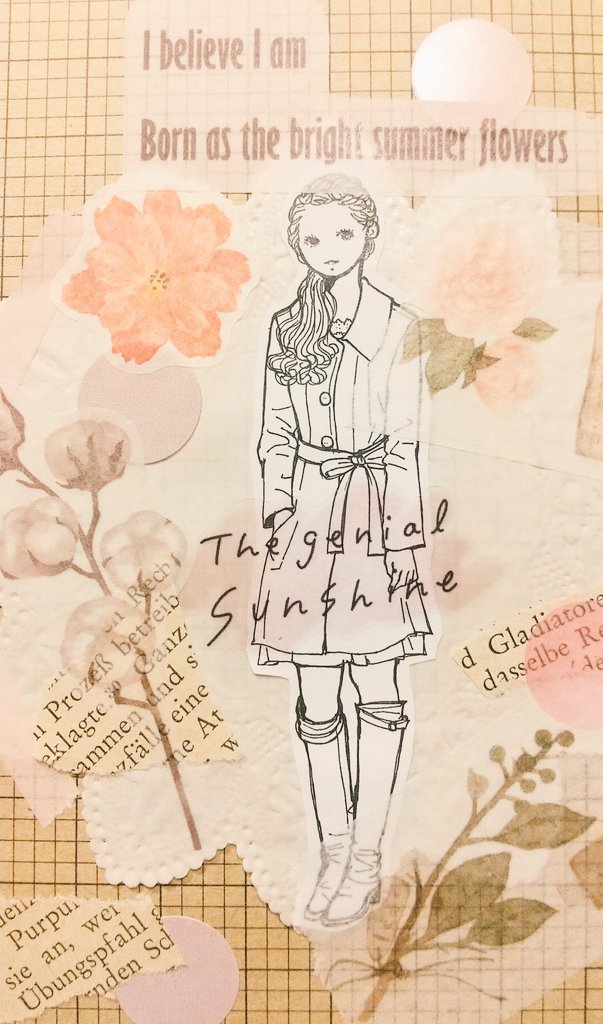 I believe I am
Born as the bright summer flowers
The genial
Sunshine
n Rech
n Prozeß betreib
eklagte
Ganz
sammen und s
zfälle eine
ne At
w
d Gladiatore
dasselbe Re
de
dem
Purpur
sie an, wei
Übungspfahl g
nden Sch